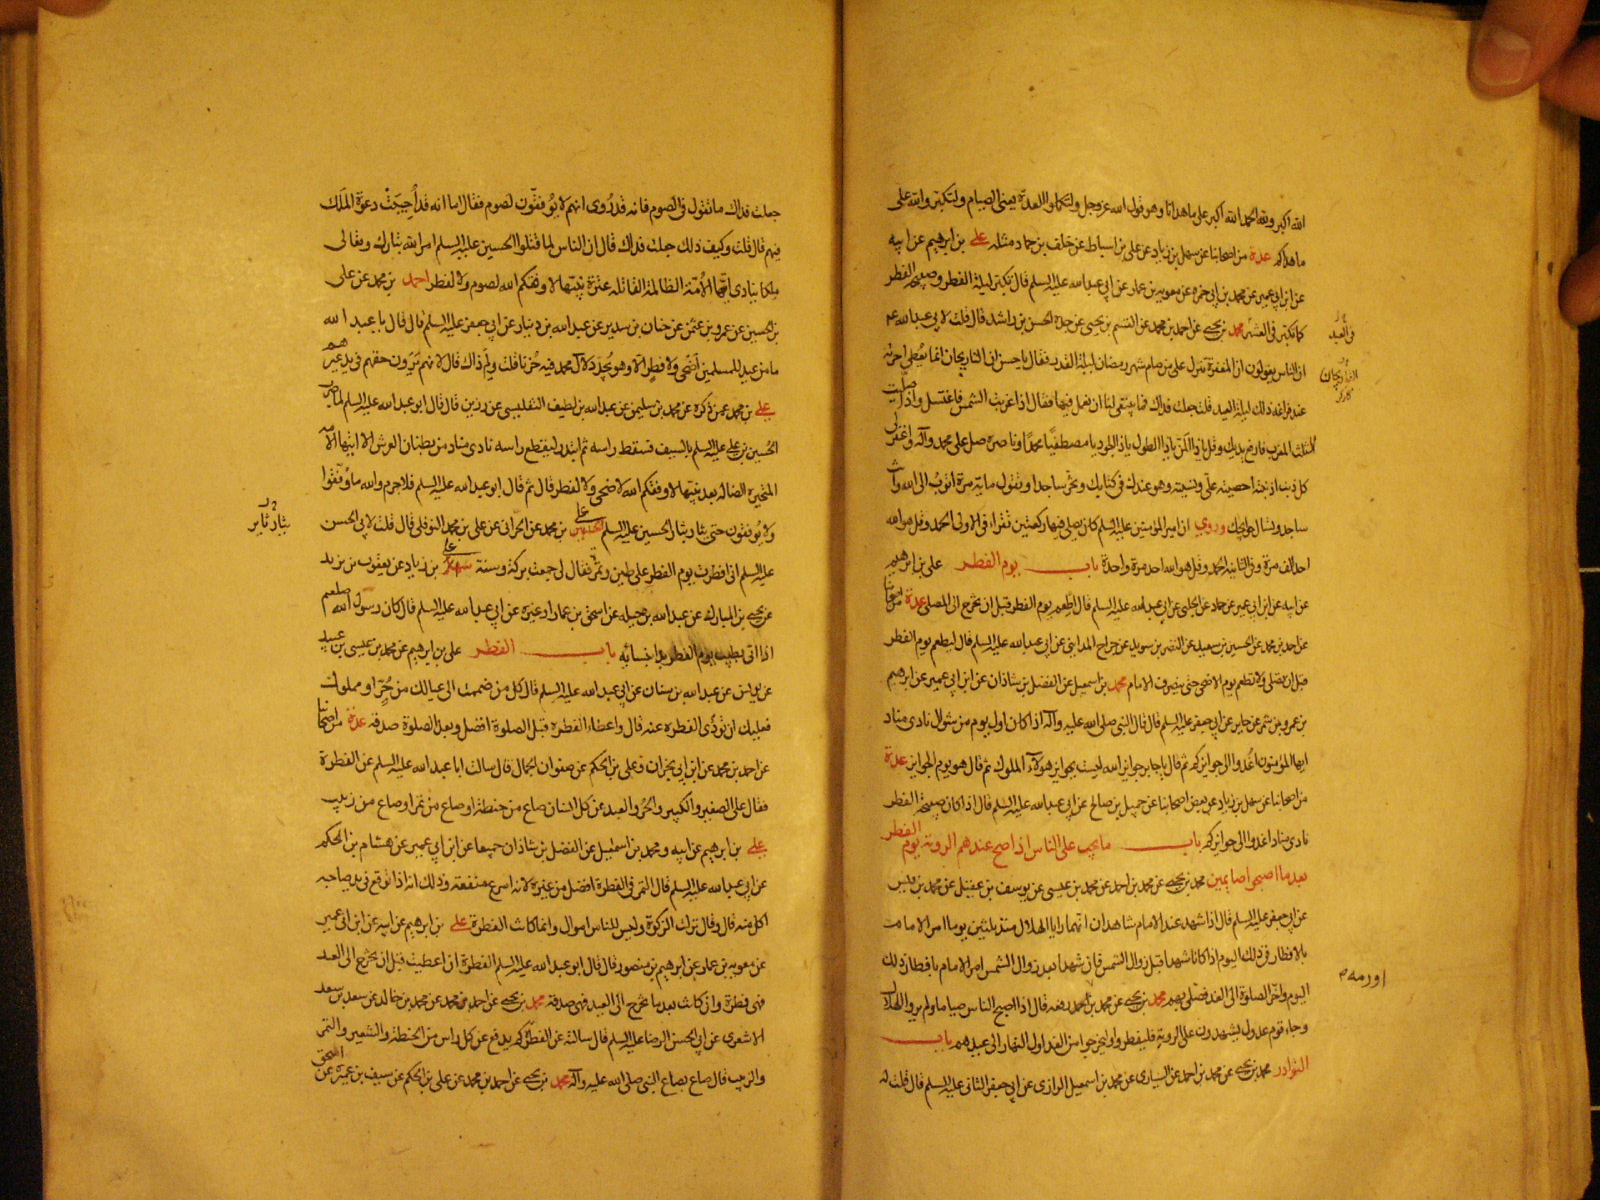 الله اكبر ولله الحمد الله اكبر على ما هدانا وهو قول الله عز وجل ولتكملوا العدة يعنى الصيام ولتكبروا الله على
ما هداكم عدة من اصحابنا عن سهل بن زياد عن على بن اسباط عن خلف بن حماد مثله على بن ابراهيم عن ابيه
عن ابن ابى عمير عن محمد بن ابى حمزه عن معويه بن عمار عن ابى عبد الله عليه السلم قال تكبر ليلة الفطر وصبيحة الفطر
كما تكبر فى العشر محمد بن يحيى عن احمد بن محمد عن القسم بن يحيى عن جده الحسن بن راشد قال قلت لابى عبد الله ع
فى العيد
ان الناس يقولون ان المغفرة تنزل على من صام شهر رمضان ليلة القدر فقال يا حسن ان القاريجان انما يعطى اجرته
عند فراغه ذلك ليلة العيد قلت جعلت فداك فما ينبغى لنا ان نعمل فيها فقال اذا غربت الشمس فاغتسل واذا صليت
الثلث المغرب فارفع يديك وقل يا ذا المن يا ذا الطول يا ذا الجود يا مصطفيا محمدا وناصره صل على محمد وآله واغفر لى
كل ذنب اذنبته احصيته على ونسيته وهو عندك فى كتابك وتخر ساجدا وتقول مايه مرة اتوب الى الله وانت
ساجد وتسال حوايجك وروى ان امير المؤمنين عليه السلم كان يصلى فيها ركعتين تقراء فى الاولى الحمد وقل هو الله
احد الف مرة وفى الثانيه الحمد وقل هو الله احد مرة واحدة باب يوم الفطر على بن ابراهيم
عن ابيه عن ابن ابى عمير عن حماد عن الحلبى عن ابى عبد الله عليه السلم قال اطعم يوم الفطر قبل ان تخرج الى المصلى عدة من اصحابنا
عن احمد بن محمد عن الحسين بن سعيد عن النضر بن سويد عن جراح المداينى عن ابى عبد الله عليه السلم قال ليطعم يوم الفطر
قبل ان يصلى ولا تطعم يوم الاضحى حتى ينصرف الامام محمد بن اسمعيل عن الفضل بن شاذان عن ابن ابى عمير عن ابراهيم
بن عمرو بن شمر عن جابر عن ابى جعفر عليه السلم قال قال النبى صلى الله عليه وآله اذا كان اول يوم من شوال نادى مناد
ايها المؤمنون اغدوا الى جوايزكم ثم قال يا جابر جوايز الله ليست بجوايز هؤلاء الملوك ثم قال هو يوم الجوايز عدة
من اصحابنا عن سهل بن زياد عن بعض اصحابنا عن جميل بن صالح عن ابى عبد الله عليه السلم قال اذا كان صبيحة الفطر
نادى مناد اغدوا الى جوايزكم باب ما يجب على الناس اذا صح عندهم الروية يوم الفطر
بعد ما اصبحوا صايمين محمد بن يحيى عن محمد بن احمد عن محمد بن عيسى عن يوسف بن عقيل عن محمد بن قيس
عن ابى جعفر عليه السلم قال اذا شهد عند الامام شاهدان انهما رايا الهلال منذ ثلثين يوما امر الامام
بالافطار فى ذلك اليوم اذا كانا شهدا قبل زوال الشمس فان شهدا بعد زوال الشمس امر الامام بافطار ذلك
اليوم واخر الصلوة الى الغد فصلى بهم محمد بن يحيى عن محمد بن احمد رفعه قال اذا اصبح الناس صياما ولم يروا الهلال
وجاء قوم عدول يشهدون على الروية فليفطروا وليخرجوا من الغد اول النهار الى عيدهم باب
النوادر محمد بن يحيى عن محمد بن احمد عن السيارى عن محمد بن اسمعيل الرازى عن ابى جعفر الثانى عليه السلم قال قلت له
جعلت فداك ما تقول فى الصوم فانه قد روى انهم لا يوفقون لصوم فقال اما انه قد اجيبت دعوة الملك
فيهم قال قلت وكيف ذلك جعلت فداك قال ان الناس لما قتلوا الحسين عليه السلم امر الله تبارك وتعالى
ملكا ينادى ايتها الامة الظالمة القاتله عترة نبيها لا وفقكم الله لصوم ولا لفطر احمد بن محمد عن على
بن الحسين عن عمرو بن عثمن عن حنان بن سدير عن عبد الله بن دينار عن ابى جعفر عليه السلم قال قال يا عبد الله
ما من عيد للمسلمين اضحى ولا فطر الا وهو يجدد لآل محمد فيه حزنا قلت ولم ذاك قال لانهم يرون حقهم فى يد غيرهم
على بن محمد عمن ذكره عن محمد بن سليمن عن عبد الله بن لطيف التفليسى عن رزين قال قال ابو عبد الله عليه السلم لما ضرب
الحسين بن على عليه السلم بالسيف فسقط راسه ثم ابتدر ليقطع راسه نادى مناد من بطنان العرش الا ايتها الامة
المتحيره الضاله بعد نبيها لا وفقكم الله لاضحى ولا لفطر قال ثم قال ابو عبد الله عليه السلم فلا جرم والله ما وفقوا
ولا يوفقون حتى يثار بثار الحسين عليه السلم الحسين على بن محمد عن الحرانى عن على بن محمد النوفلى قال قلت لابى الحسن
عليه السلم انى افطرت يوم الفطر على طين وتمر فقال لى جمعت بركة وسنة سهل على بن زياد عن يعقوب بن يزيد
عن يحيى بن المبارك عن عبد الله بن جبله عن اسحق بن عمار او غيره عن ابى عبد الله عليه السلم قال كان رسول الله صلعم
اذا اتى بطيب يوم الفطر بدا بنسائه باب الفطر على بن ابراهيم عن محمد بن عيسى بن عبيد
عن يونس عن عبد الله بن سنان عن ابى عبد الله عليه السلم قال كل من ضممت الى عيالك من حر او مملوك
فعليك ان تؤدى الفطره عنه قال واعطاء الفطره قبل الصلوة افضل وبعد الصلوة صدقه عدة من اصحابنا
عن احمد بن محمد عن ابن ابى نجران وعلى بن الحكم عن صفوان الجمال قال سالت ابا عبد الله عليه السلم عن الفطرة
فقال على الصغير والكبير والحر والعبد عن كل انسان صاع من حنطة او صاع من تمر او صاع من زبيب
على بن ابراهيم عن ابيه و محمد بن اسمعيل عن الفضل بن شاذان جميعا عن ابن ابى عمير عن هشام بن الحكم
عن ابى عبد الله عليه السلم قال التمر فى الفطرة افضل من غيره لانه اسرع منفعة وذلك انه اذا وقع فى يد صاحبه
اكل منه قال وقال نزلت الزكوة وليس للناس اموال وانما كانت الفطرة على بن ابراهيم عن ابيه عن ابن ابى عمير
عن معويه بن عمار عن ابراهيم بن منصور قال قال ابو عبد الله عليه السلم الفطرة ان اعطيت قبل ان يخرج الى العيد
فهى فطرة وان كانت بعد ما يخرج الى العيد فهى صدقة محمد بن يحيى عن احمد بن محمد عن محمد بن خالد عن سعد بن سعد
الاشعرى عن ابى الحسن الرضا عليه السلم قال سالته عن الفطرة كم يدفع عن كل راس من الحنطة والشعير والتمر
والزبيب قال صاع بصاع النبى صلى الله عليه وآله محمد بن يحيى عن احمد بن محمد عن على بن الحكم عن سيف بن عميره عن اسحق